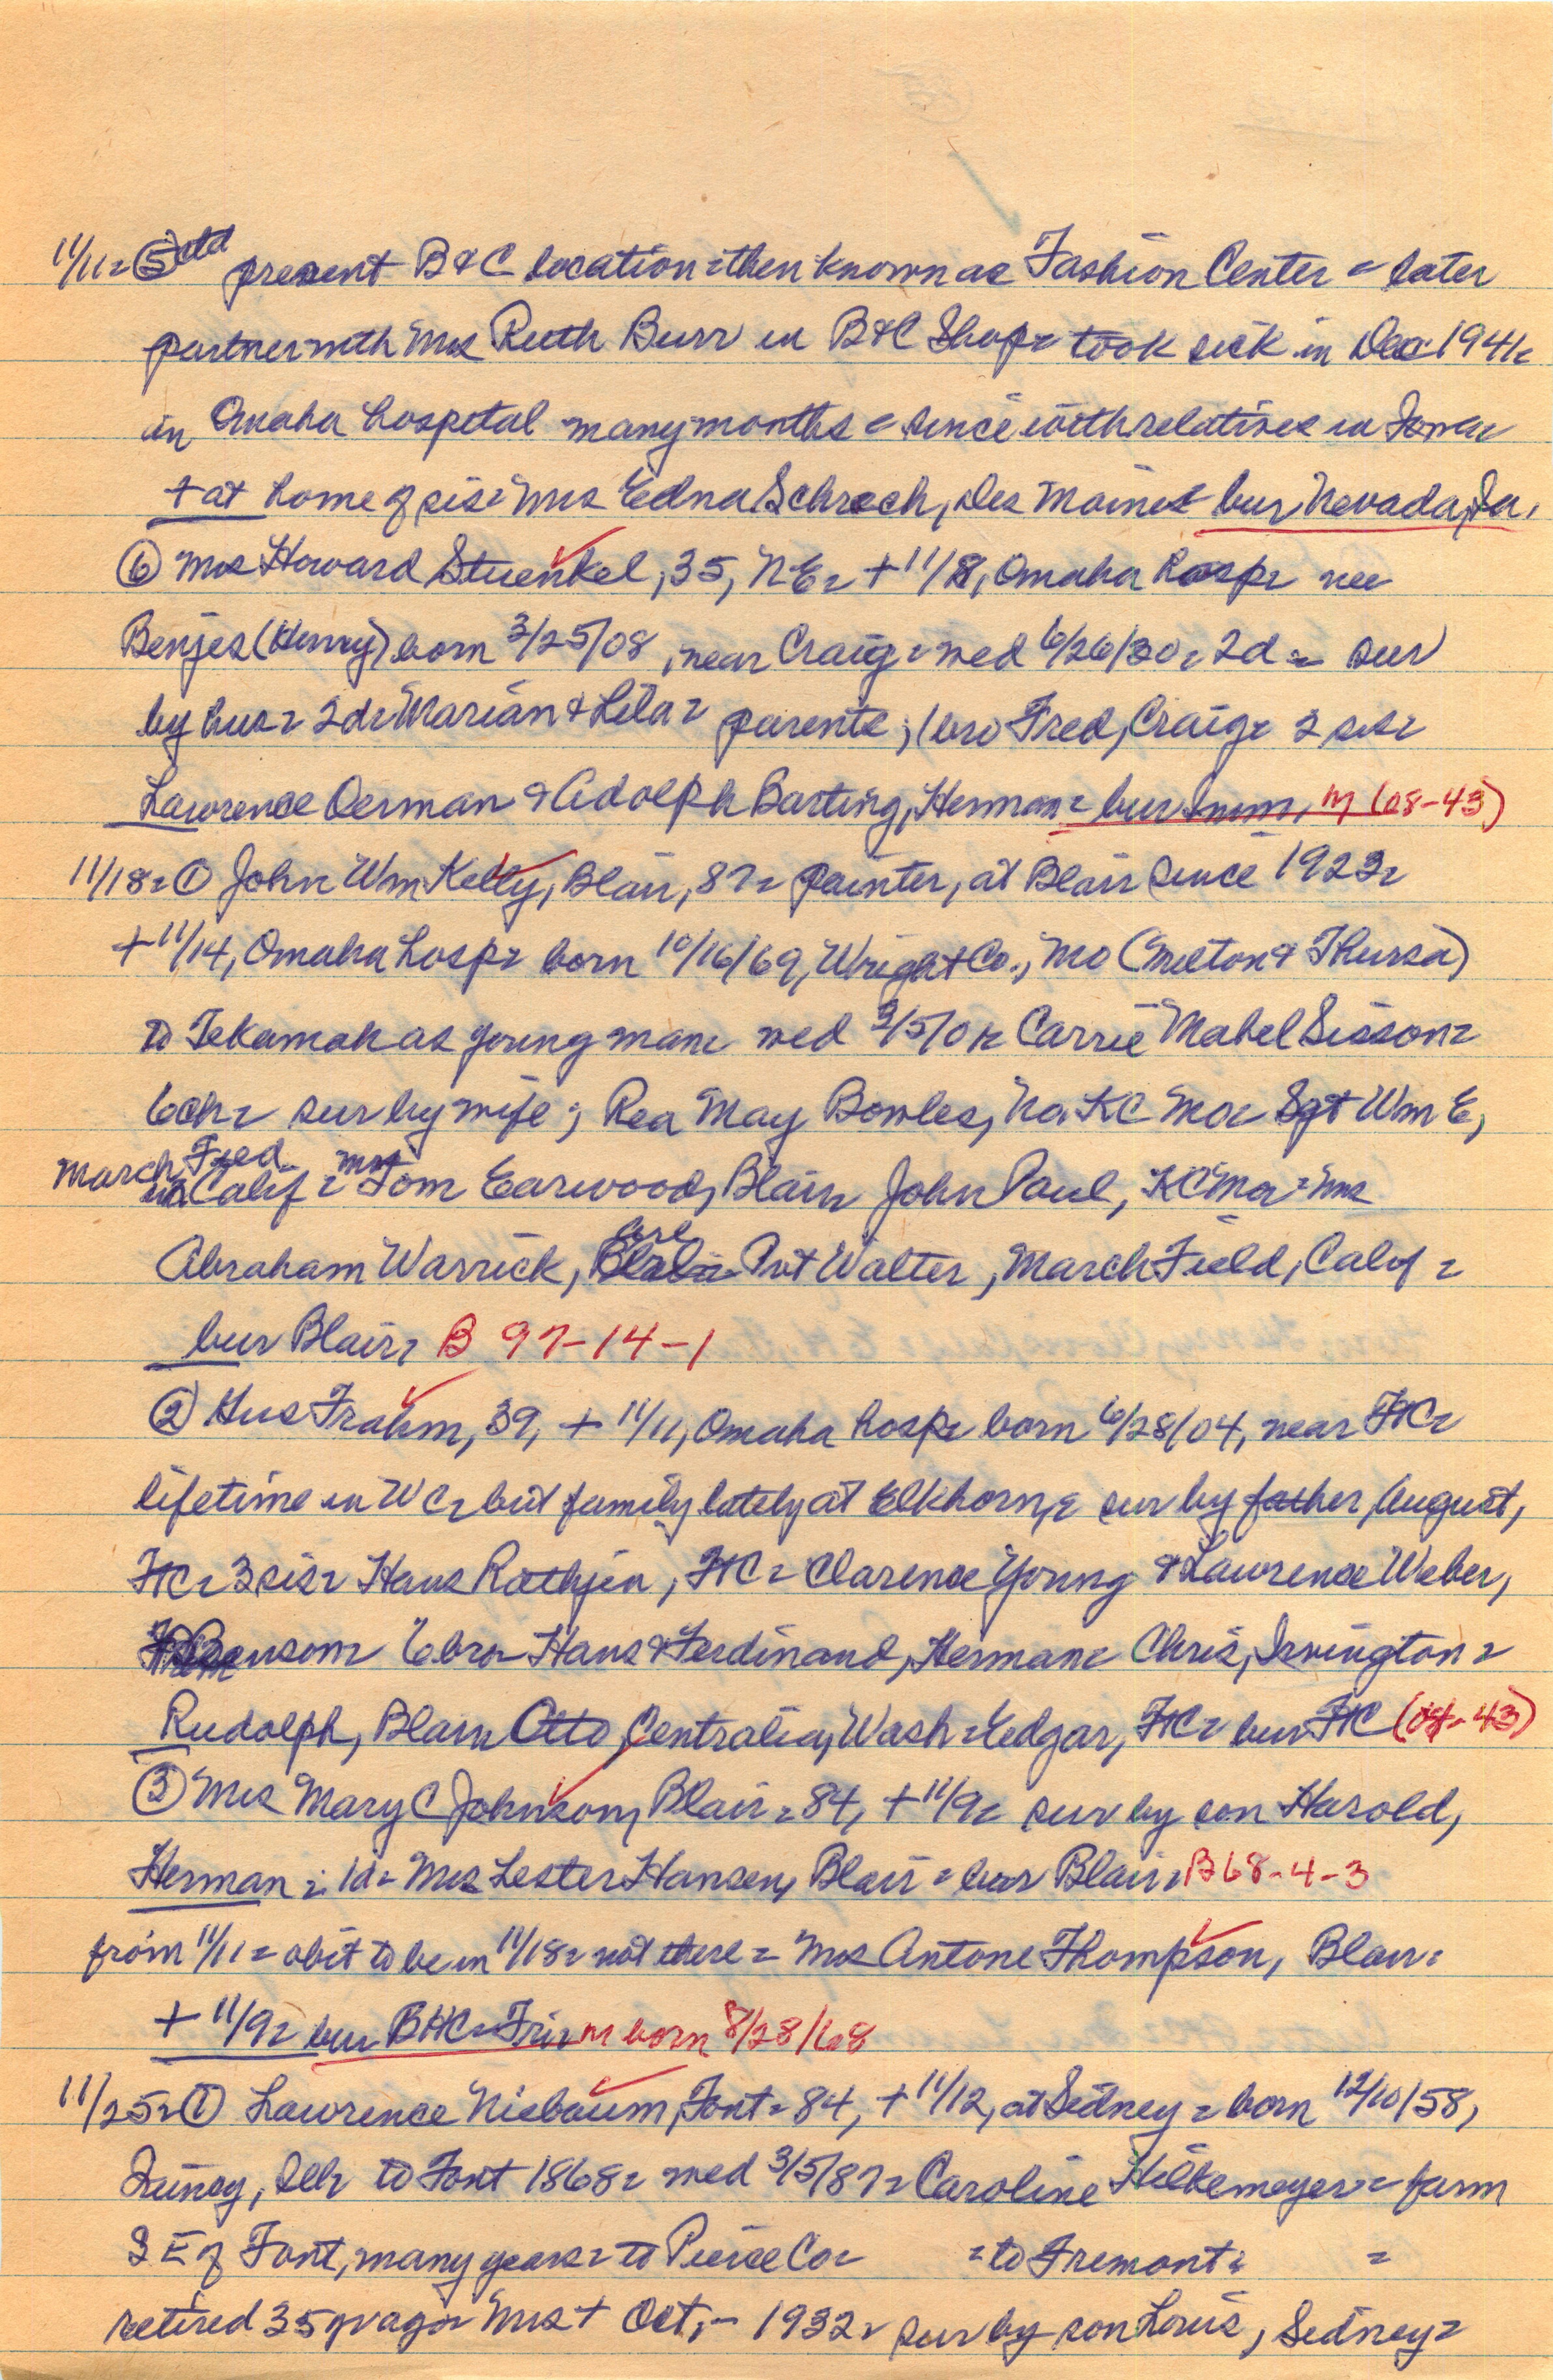 11/11= ⑤ctd present B&C location=then known as Fashion Center = later
partner with Mrs Ruth Burr in B&C Shop= took sick in Dec 1941=
in Omaha hospital many months = since with relatives in Iowa=
+ at home of sis= Mrs Edna Schroch, Des Moines= bur Nevada, Ia.
⑥ Mrs Howard Stuenkel, 35, NE= + 11/8, Omaha hosp= nee
Benjes (Henry) born 3/25/08, near Craig= wed 6/26/30= 2d = sur
by hus= 2d= Marian & Lila= parents; 1 bro Fred, Craig= 2 sis=
Lawrence Oerman & Adolph Barting, Herman= bur M (08-43)
11/18= ① John Wm Kelly, Blair, 87= painter, at Blair since 1923=
+ 11/14, Omaha hosp= born 10/16/69, Wright Co., Mo (Milton & Thursa)
to Tekamah as young man= wed 3/5/01= Carrie Mabel Sisson=
6ch= sur by wife; Rea May Bowles, No. KC Mo= Sgt Wm E,
March Field Calif = Mrs Tom Earwood, Blair= John Paul, KC Mo = Mrs
Abraham Warrick, Pvt Walter, March Field, Calif =
bur Blair= B 97-14-1
② Gus Frahm, 39, + 11/11, Omaha hosp= born 6/28/04, near FtC=
lifetime in WC= but family lately at Elkhorn= sur by father, August,
FtC= 3 sis= Hans Rathjen, FtC= Clarence Young & Lawrence Weber,
Benson= 6 bro= Hans & Ferdinand, Herman= Chris, Irvington=
Rudolph, Blair= Otto, Centralia, Wash= Edgar, FtC= bur FtC (04-43)
③ Mrs Mary C Johnson, Blair= 84, + 11/9= sur by son Harold,
Herman; 1d= Mrs Lester Hansen, Blair= bur Blair= B 68-4-3
from 11/11= obit to be in 11/18= not there= Mrs Antone Thompson, Blair=
+ 11/9= bur BHC= Fri= M born 8/28/68
11/25= ① Lawrence Niebaum, Font= 84, + 11/12, at Sidney= born 12/10/58,
Quincy, Ill= to Font 1868= wed 3/5/87= Caroline Hilkemeyer= farm
SE of Font, many years= to Pierce Co= =to Fremont= =
retired 35 yr ago= Mrs + Oct,- 1932= sur by son Louis, Sidney=